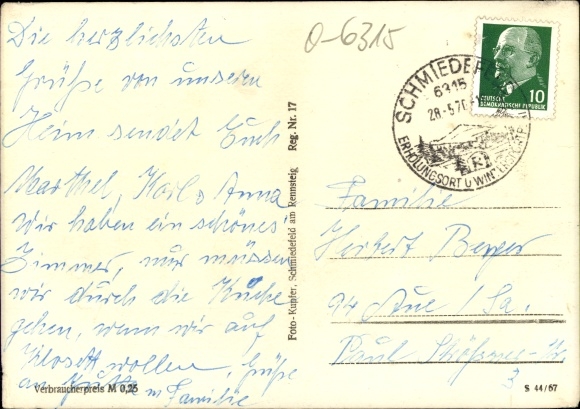 Die herzlichsten
Grüße von unserem
Heim sendet Euch
Marthel, Karl & Anna
Wir haben ein schönes
Zimmer, nur müssen
wir durch die Küche
gehen, wenn wir auf
Klosett wollen, Grüße
an m Familie
Verbraucherpreis M 0,25
Foto-Kupfer, Schmiedefeld am Rennsteig Reg. Nr. 17
O-6315
SCHMIEDEFE
6315
28.-5.70
ERHOLUNGSORT U WIN
DEUTSCHE
DEMOKRATISCHE REPUBLIK
10
Familie
Herbert Berger
94 Aue / Sa.
Paul
3
S 44/67